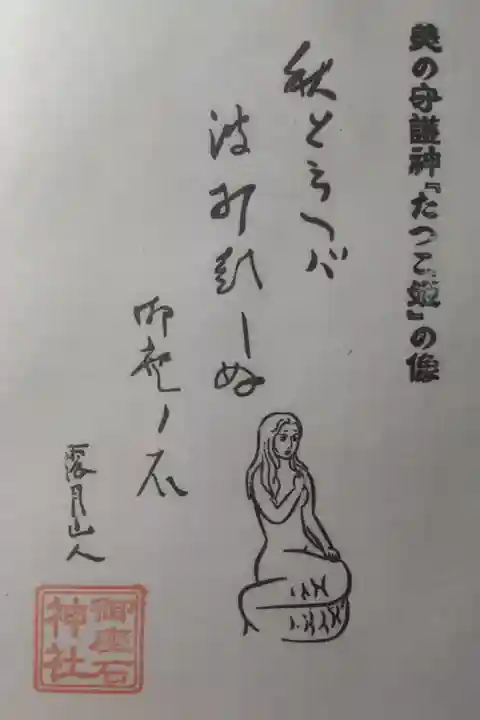 美の守護神『たつこ姫』の像
秋と云へバ
波打 しぬ
御座ノ石
露月山人
御座石
神社